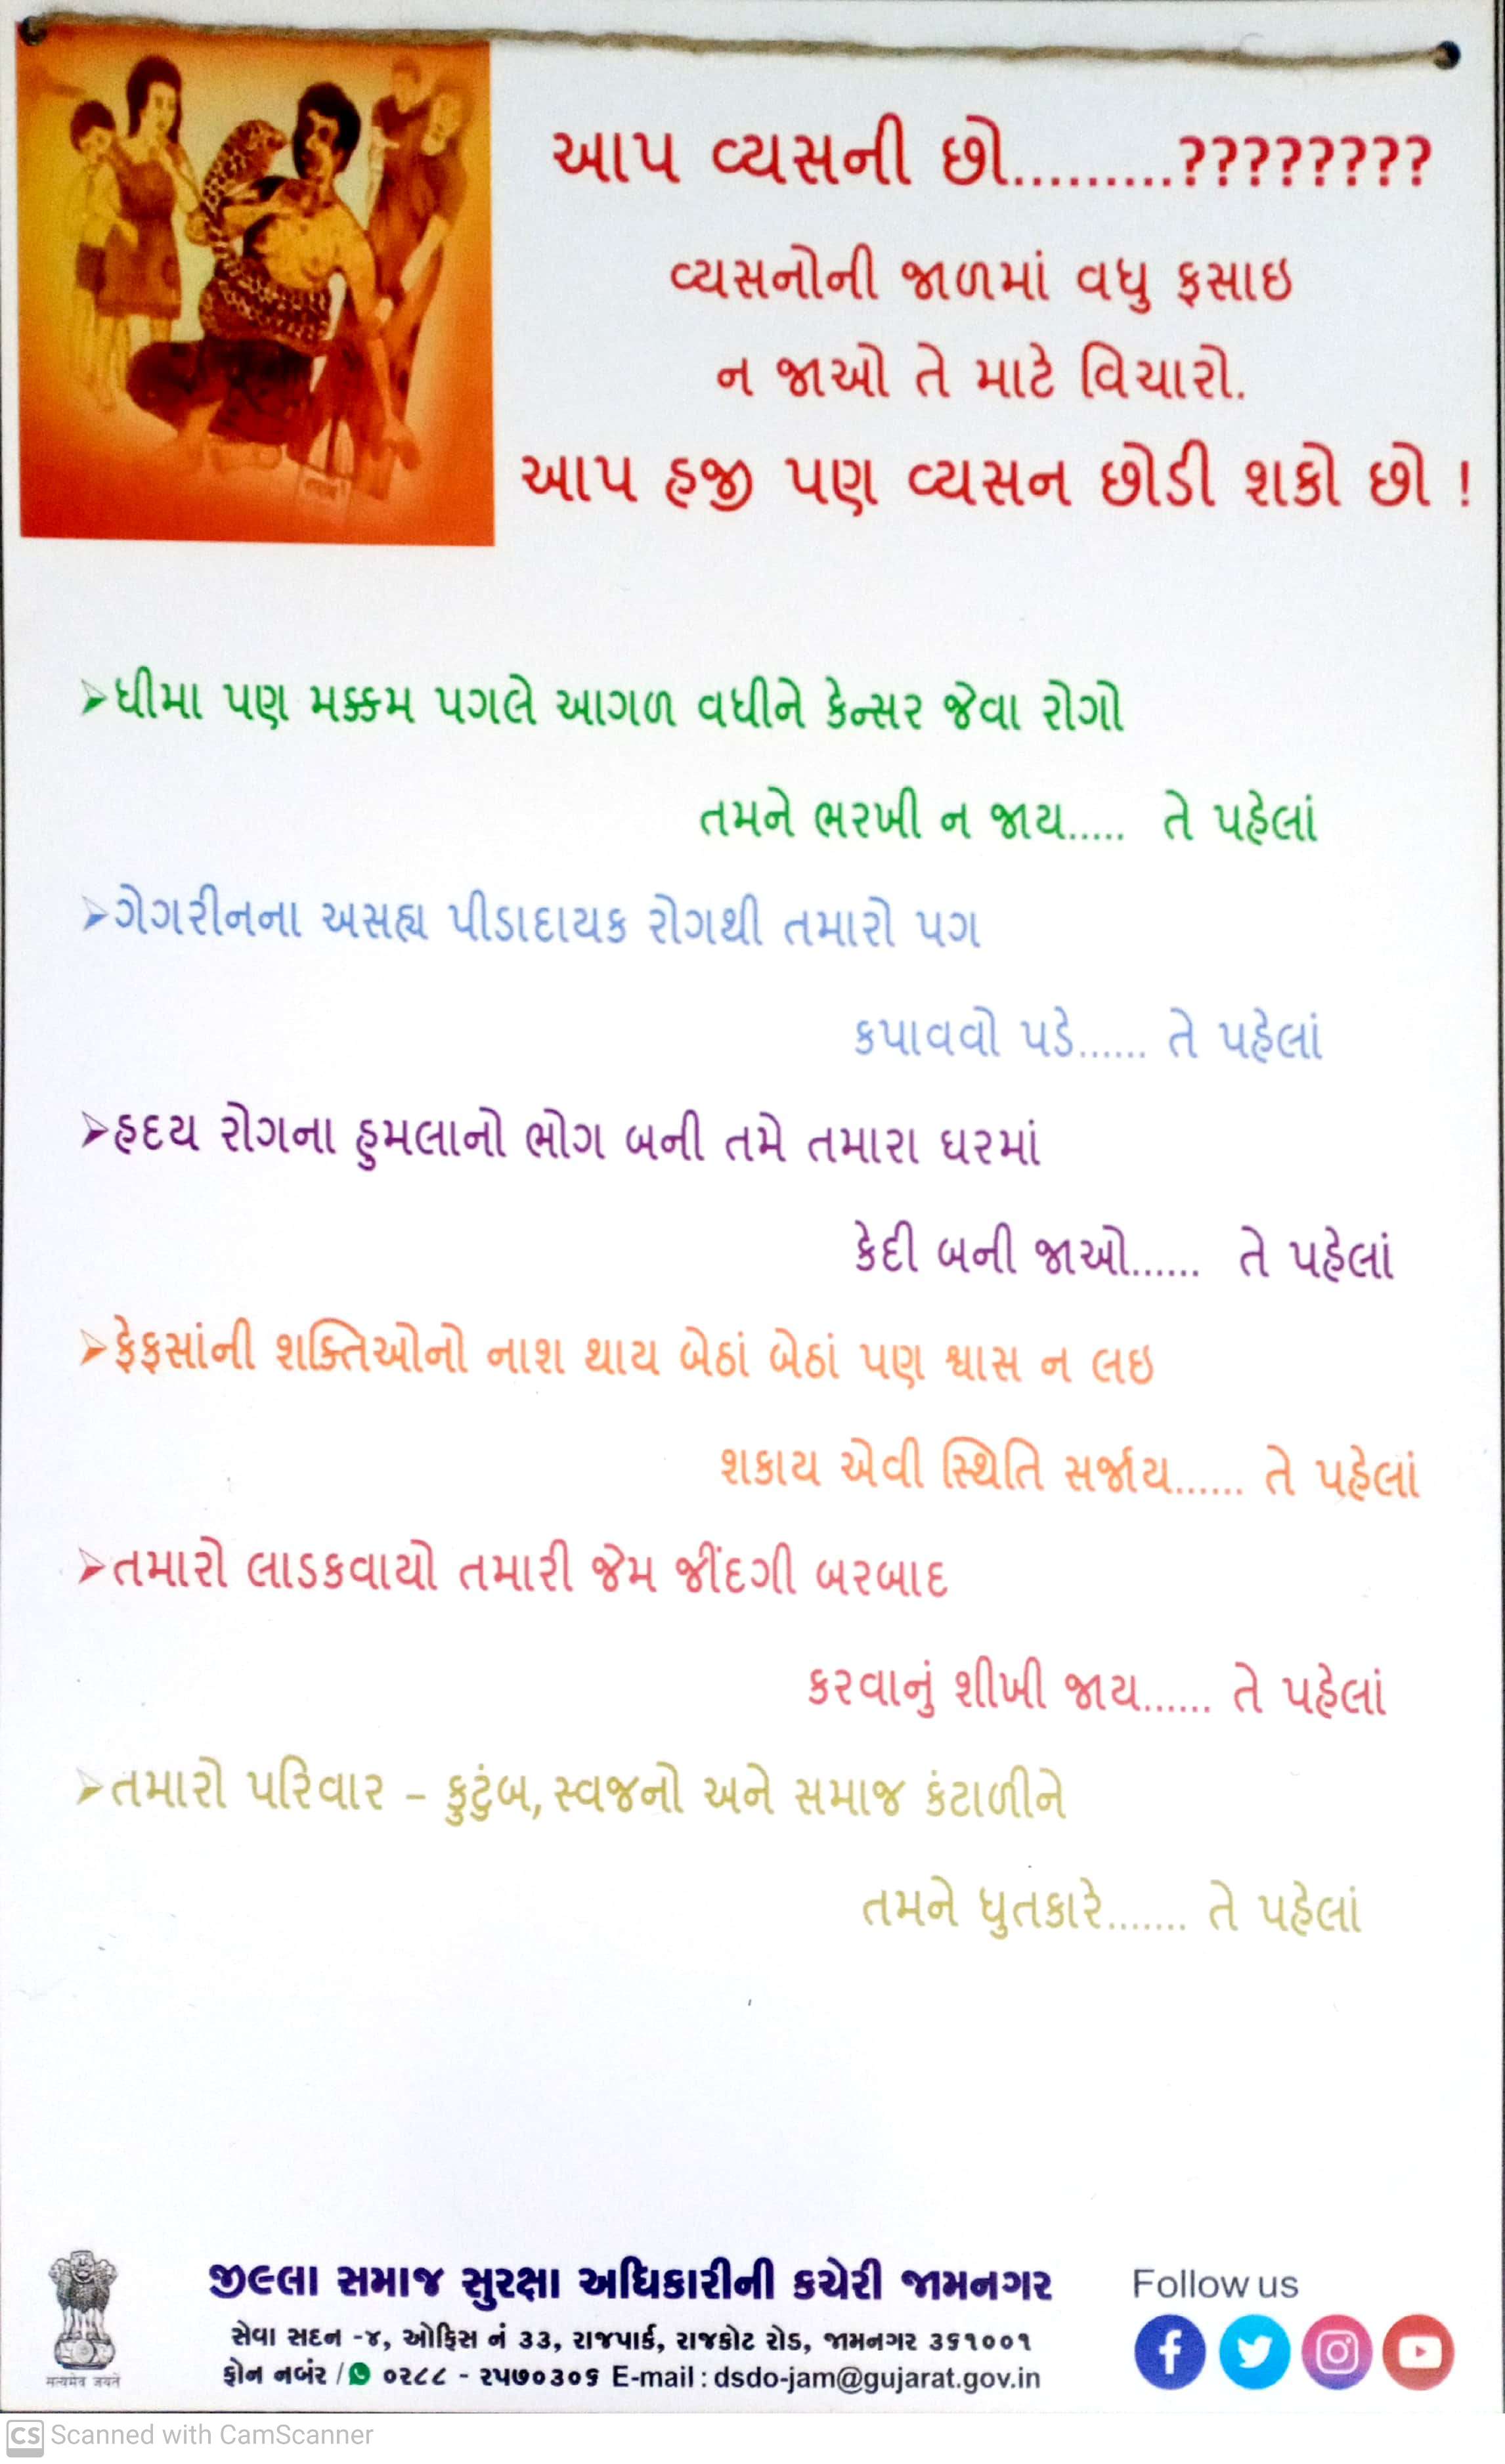 આપ વ્યસની છો.........????????
વ્યસનોની જાળમાં વધુ ફસાઇ
ન જાઓ તે માટે વિચારો.
આપ હજી પણ વ્યસન છોડી શકો છો !
➢ધીમા પણ મક્કમ પગલે આગળ વધીને કેન્સર જેવા રોગો
તમને ભરખી ન જાય..... તે પહેલાં
➢ગેગરીનના અસહ્ય પીડાદાયક રોગથી તમારો પગ
કપાવવો પડે...... તે પહેલાં
➢હદય રોગના હુમલાનો ભોગ બની તમે તમારા ઘરમાં
કેદી બની જાઓ...... તે પહેલાં
➢ફેફસાંની શક્તિઓનો નાશ થાય બેઠાં બેઠાં પણ શ્વાસ ન લઇ
શકાય એવી સ્થિતિ સર્જાય...... તે પહેલાં
➢તમારો લાડકવાયો તમારી જેમ જીંદગી બરબાદ
કરવાનું શીખી જાય...... તે પહેલાં
➢તમારો પરિવાર – કુટુંબ, સ્વજનો અને સમાજ કંટાળીને
તમને ધુતકારે....... તે પહેલાં
सत्यमेव जयते
જીલ્લા સમાજ સુરક્ષા અધિકારીની કચેરી જામનગર
સેવા સદન -૪, ઓફિસ નં ૩૩, રાજપાર્ક, રાજકોટ રોડ, જામનગર ૩૬૧૦૦૧
ફોન નબંર / ૦૨૮૮ - ૨૫૭૦૩૦૬ E-mail : dsdo-jam@gujarat.gov.in
Follow us
CS Scanned with CamScanner